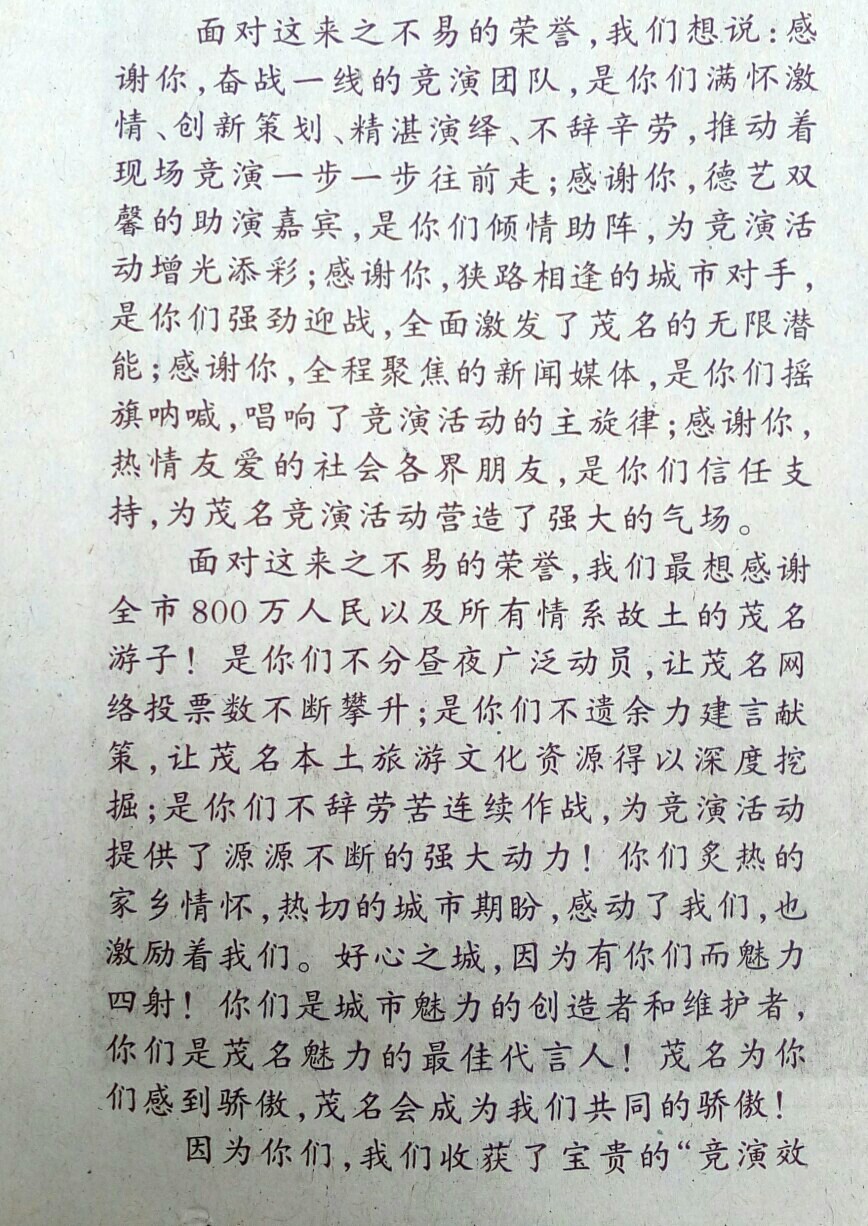 面对这来之不易的荣誉,我们想说:感
谢你,奋战一线的竞演团队,是你们满怀激
情、创新策划、精湛演绎、不辞辛劳,推动着
现场竞演一步一步往前走;感谢你,德艺双
馨的助演嘉宾,是你们倾情助阵,为竞演活
动增光添彩;感谢你,狭路相逢的城市对手,
是你们强劲迎战,全面激发了茂名的无限潜
能;感谢你,全程聚焦的新闻媒体,是你们摇
旗呐喊,唱响了竞演活动的主旋律;感谢你,
热情友爱的社会各界朋友,是你们信任支
持,为茂名竞演活动营造了强大的气场。
面对这来之不易的荣誉,我们最想感谢
全市800万人民以及所有情系故土的茂名
游子！是你们不分昼夜广泛动员,让茂名网
络投票数不断攀升;是你们不遗余力建言献
策,让茂名本土旅游文化资源得以深度挖
掘;是你们不辞劳苦连续作战,为竞演活动
提供了源源不断的强大动力！你们炙热的
家乡情怀,热切的城市期盼,感动了我们,也
激励着我们。好心之城,因为有你们而魅力
四射！你们是城市魅力的创造者和维护者,
你们是茂名魅力的最佳代言人！茂名为你
们感到骄傲,茂名会成为我们共同的骄傲！
因为你们,我们收获了宝贵的“竞演效